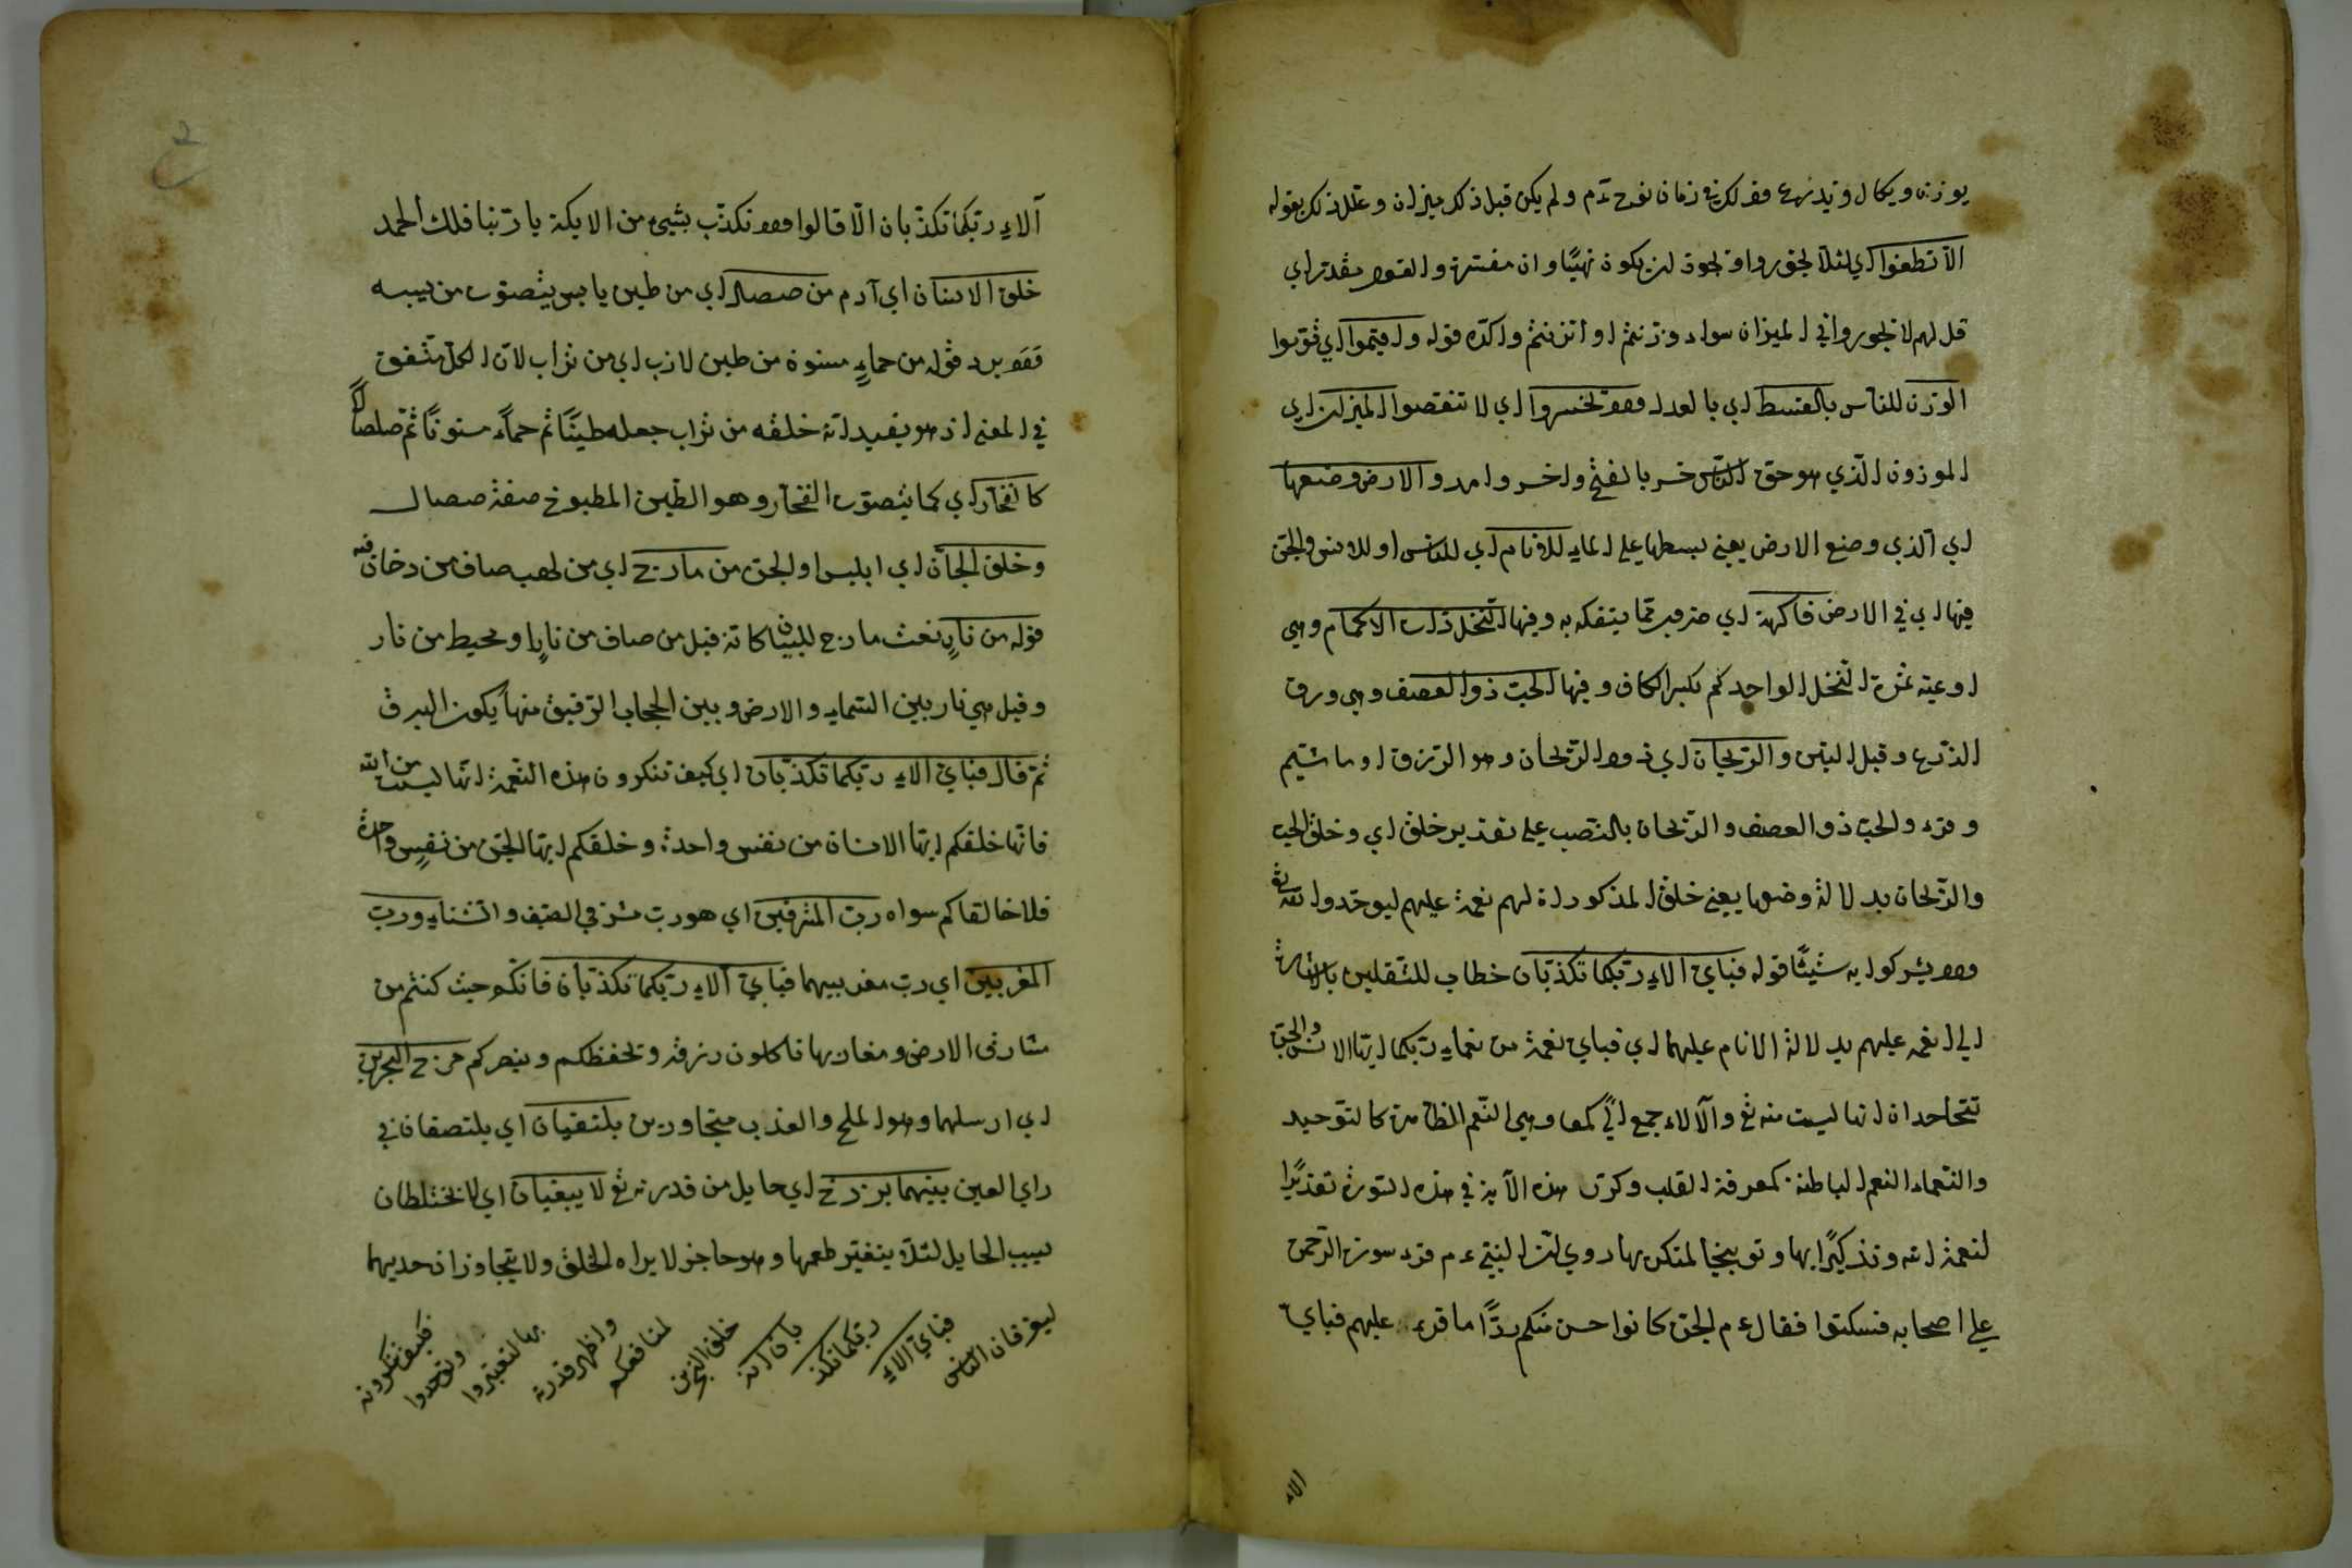 يوزن ويكال ويذرع وذلك في زمان نوح ع م ولم يكن قبل ذلك ميزان وعلل ذلك بقوله
الا تطغوا اي لئلا تجوروا او تجوز ان يكون نهيا وان مفسرة والقول مقدر اي
قل لهم لا تجوروا في الميزان سواء وزنتم او اتزنتم واكده قوله واقيموا اي قوموا
الوزن للناس بالقسط اي بالعدل ولا تخسروا اي لا تنقصوا الميزان اي
الموزون الذي هو حق الناس خسر بالفتح واخسر واحد والارض وضعها
اي الذي وضع الارض يعني بسطها على الماء للانام اي للناس او للانس والجن
فيها اي في الارض فاكهة اي ضروب مما يتفكه به وفيها النخل ذات الاكمام وهي
اوعية ثمرة النخل الواحد كم بكسر الكاف وفيها الحب ذو العصف وهي ورق
الزرع وقيل التبن والريحان اي ذو الريحان وهو الرزق او ما شيم
وقرء والحب ذو العصف والريحان بالنصب على تقدير خلق اي وخلق الحب
والريحان بدلالة وضعها يعني خلق المذكورات لهم نعمة عليهم ليوحدوا الله تع
ولا يشركوا به شيئا قوله فباي الاء ربكما تكذبان خطاب للثقلين باشارة
الى النعمة عليهم بدلالة الانام عليهما اي فباي نعمة من نعماء ربكما ايها الانس والجن
تتجاحدان انها ليست منه تع والآلاء جمع الي كمعا وهي النعم الظاهرة كالتوحيد
والنعماء النعم الباطنة كمعرفة القلب وكرر هذه الآية في هذه السورة تقديرا
لنعمة الله وتذكيرا بها وتوبيخا لمنكر بها روي ان النبي ع م قرء سورة الرحمن
على اصحابه فسكتوا فقال ع م الجن كانوا احسن منكم ردا ما قرء عليهم فباي
الاء
آلاء ربكما تكذبان الا قالوا ولا نكذب بشيئ من الايكة يا ربنا فلك الحمد
خلق الانسان اي آدم من صلصال اي من طين يابس يتصوت من يبسه
ولا يرد قوله من حماء مسنون من طين لازب اي من تراب لان الكل متفق
في المعنى اذ هو يفيد انه خلقه من تراب جعله طينا ثم حماء مسنونا ثم صلصالا
كالفخار اي كما يتصوت الفخار وهو الطين المطبوخ صفة صلصال
وخلق الجان اي ابليس او الجن من مارج اي من لهب صاف من دخان فيه
قوله من نار نعت مارج للبيان كانه قيل من صاف من نار او محيط من نار
وقيل هي نار بين السماء والارض وبين الحجاب الرقيق منها يكون البرق
ثم قال فباي الاء ربكما تكذبان اي كيف تنكرون هذه النعمة انها ليست من الله
فانها خلقكم ايها الانسان من نفس واحدة وخلقكم ايها الجن من نفس واحدة
فلا خالقا كم سواه رب المشرقين اي هو رب مشرقي الصيف والشتاء ورب
المغربين اي رب مغربيهما فباي آلاء ربكما تكذبان فانكم حيث كنتم من
مشارق الارض ومغاربها تاكلون رزقه وتحفظكم وينصركم مرج البحرين
اي ارسلهما وهو الملح والعذب متجاورين يلتقيان اي يلتصقان في
راي العين بينهما برزخ اي حايل من قدرته تع لا يبغيان اي لا يختلطان
بسبب الحايل لئلا يتغير طعمها وهو حاجز لا يراه الخلق ولا يتجاوزان حديهما
ليغرقان الناس
فباي الاء
ربكما تكذ
بان انه
خلق البحرين
لمنافعكم
واظهر قدرته
بها لتعتبروا
وتوحدوا
فكيف تنكرونه